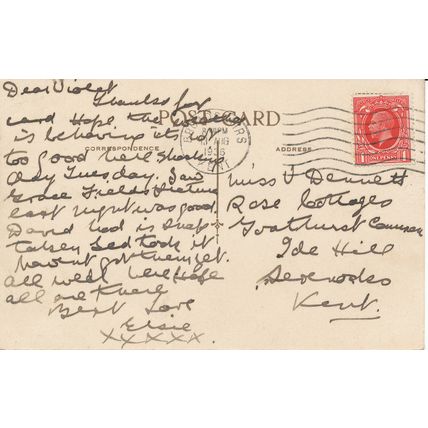 Dear Violet
Thanks for
card Hope the
is behaving its
too good here
day Tuesday. Saw
Gracie Fields Picture
last night was good
David had is
taken Ted took it
havent got them yet.
all well here hope
all are there
Best Love
Elsie
xxxxxx
POST CARD
CORRESPONDENCE
ADDRESS
AUG
1936
ONE PENNY
Miss V Dennett
Rose Cottages
Goathurst Common
Ide Hill
Sevenoaks
Kent.